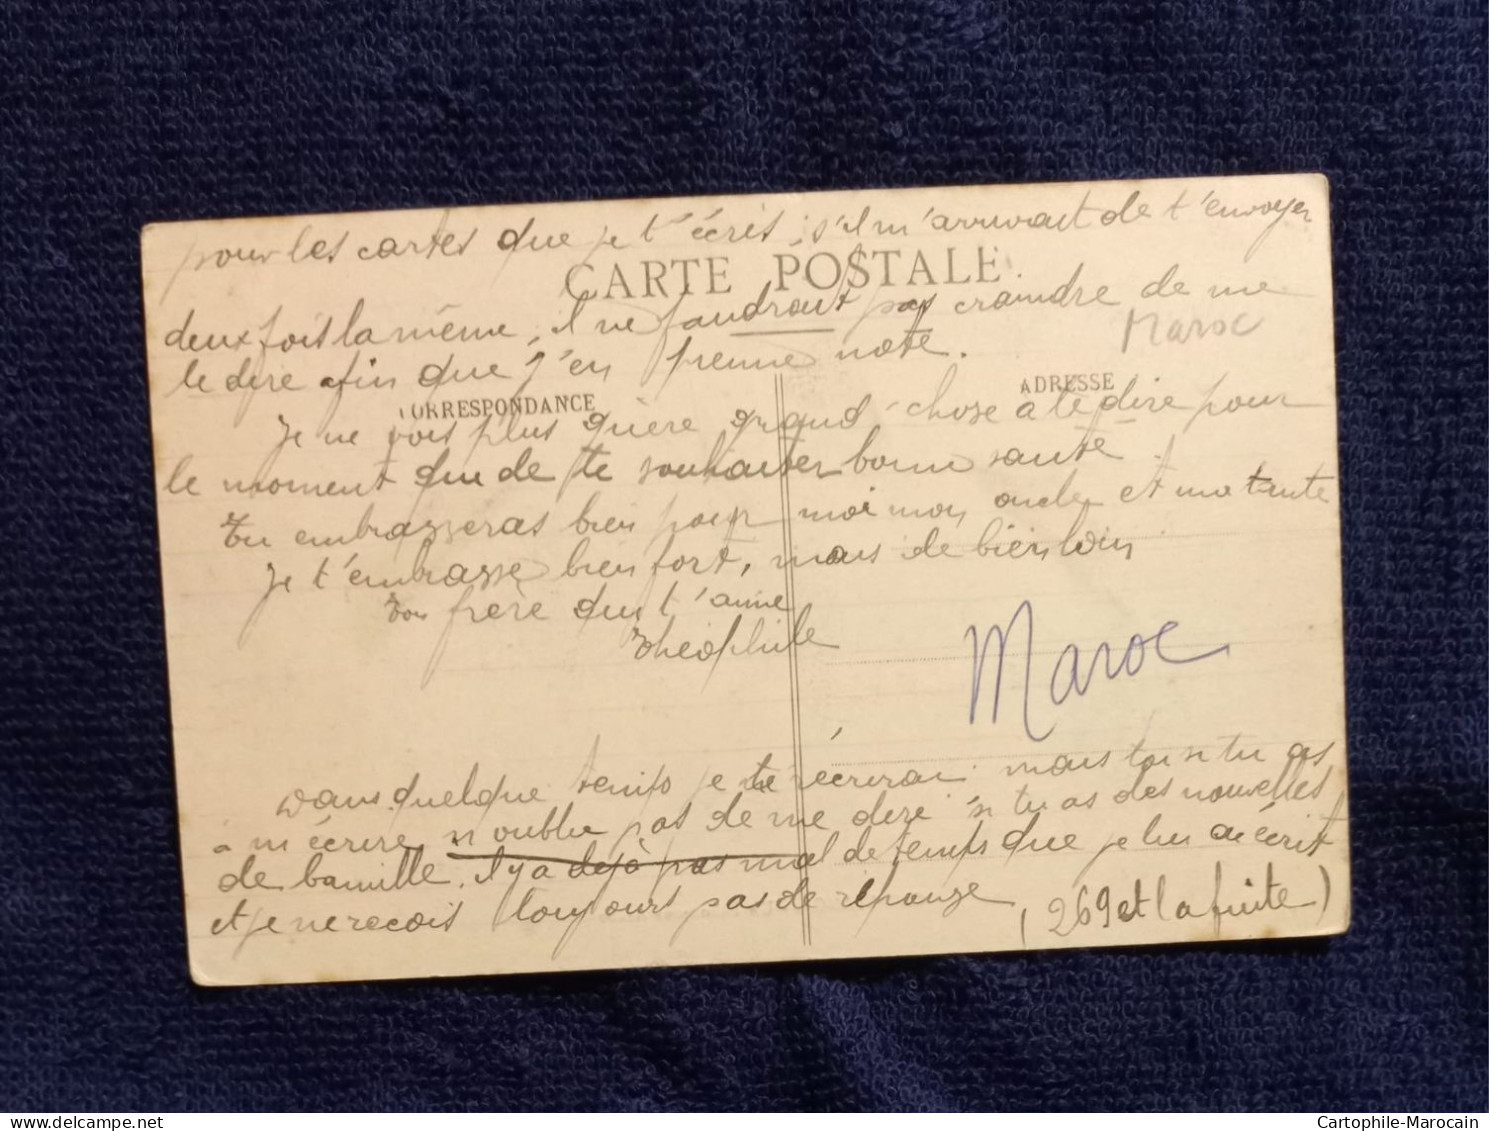 pour les cartes que je t'écris, s'il m'arrivait de t'envoyer
CARTE POSTALE
deux fois la même, il ne faudrait pas craindre de me
Maroc
le dire afin que j'en prenne note.
CORRESPONDANCE
ADRESSE
Je ne vois plus guère grand-chose à te dire pour
le moment que de te souhaiter bonne santé.
Tu embrasseras bien pour moi mon oncle et ma tante
Je t'embrasse bien fort, mais de bien loin
Ton frère qui t'aime
Théophile
Maroc
Dans quelque temps je te récrirai mais toi si tu as
à m'écrire n'oublie pas de me dire si tu as des nouvelles
de famille. Il y a déjà pas mal de temps que je lui ai écrit
et je ne reçois toujours pas de réponse
(269 et la suite)
delcampe.net
Cartophile-Marocain